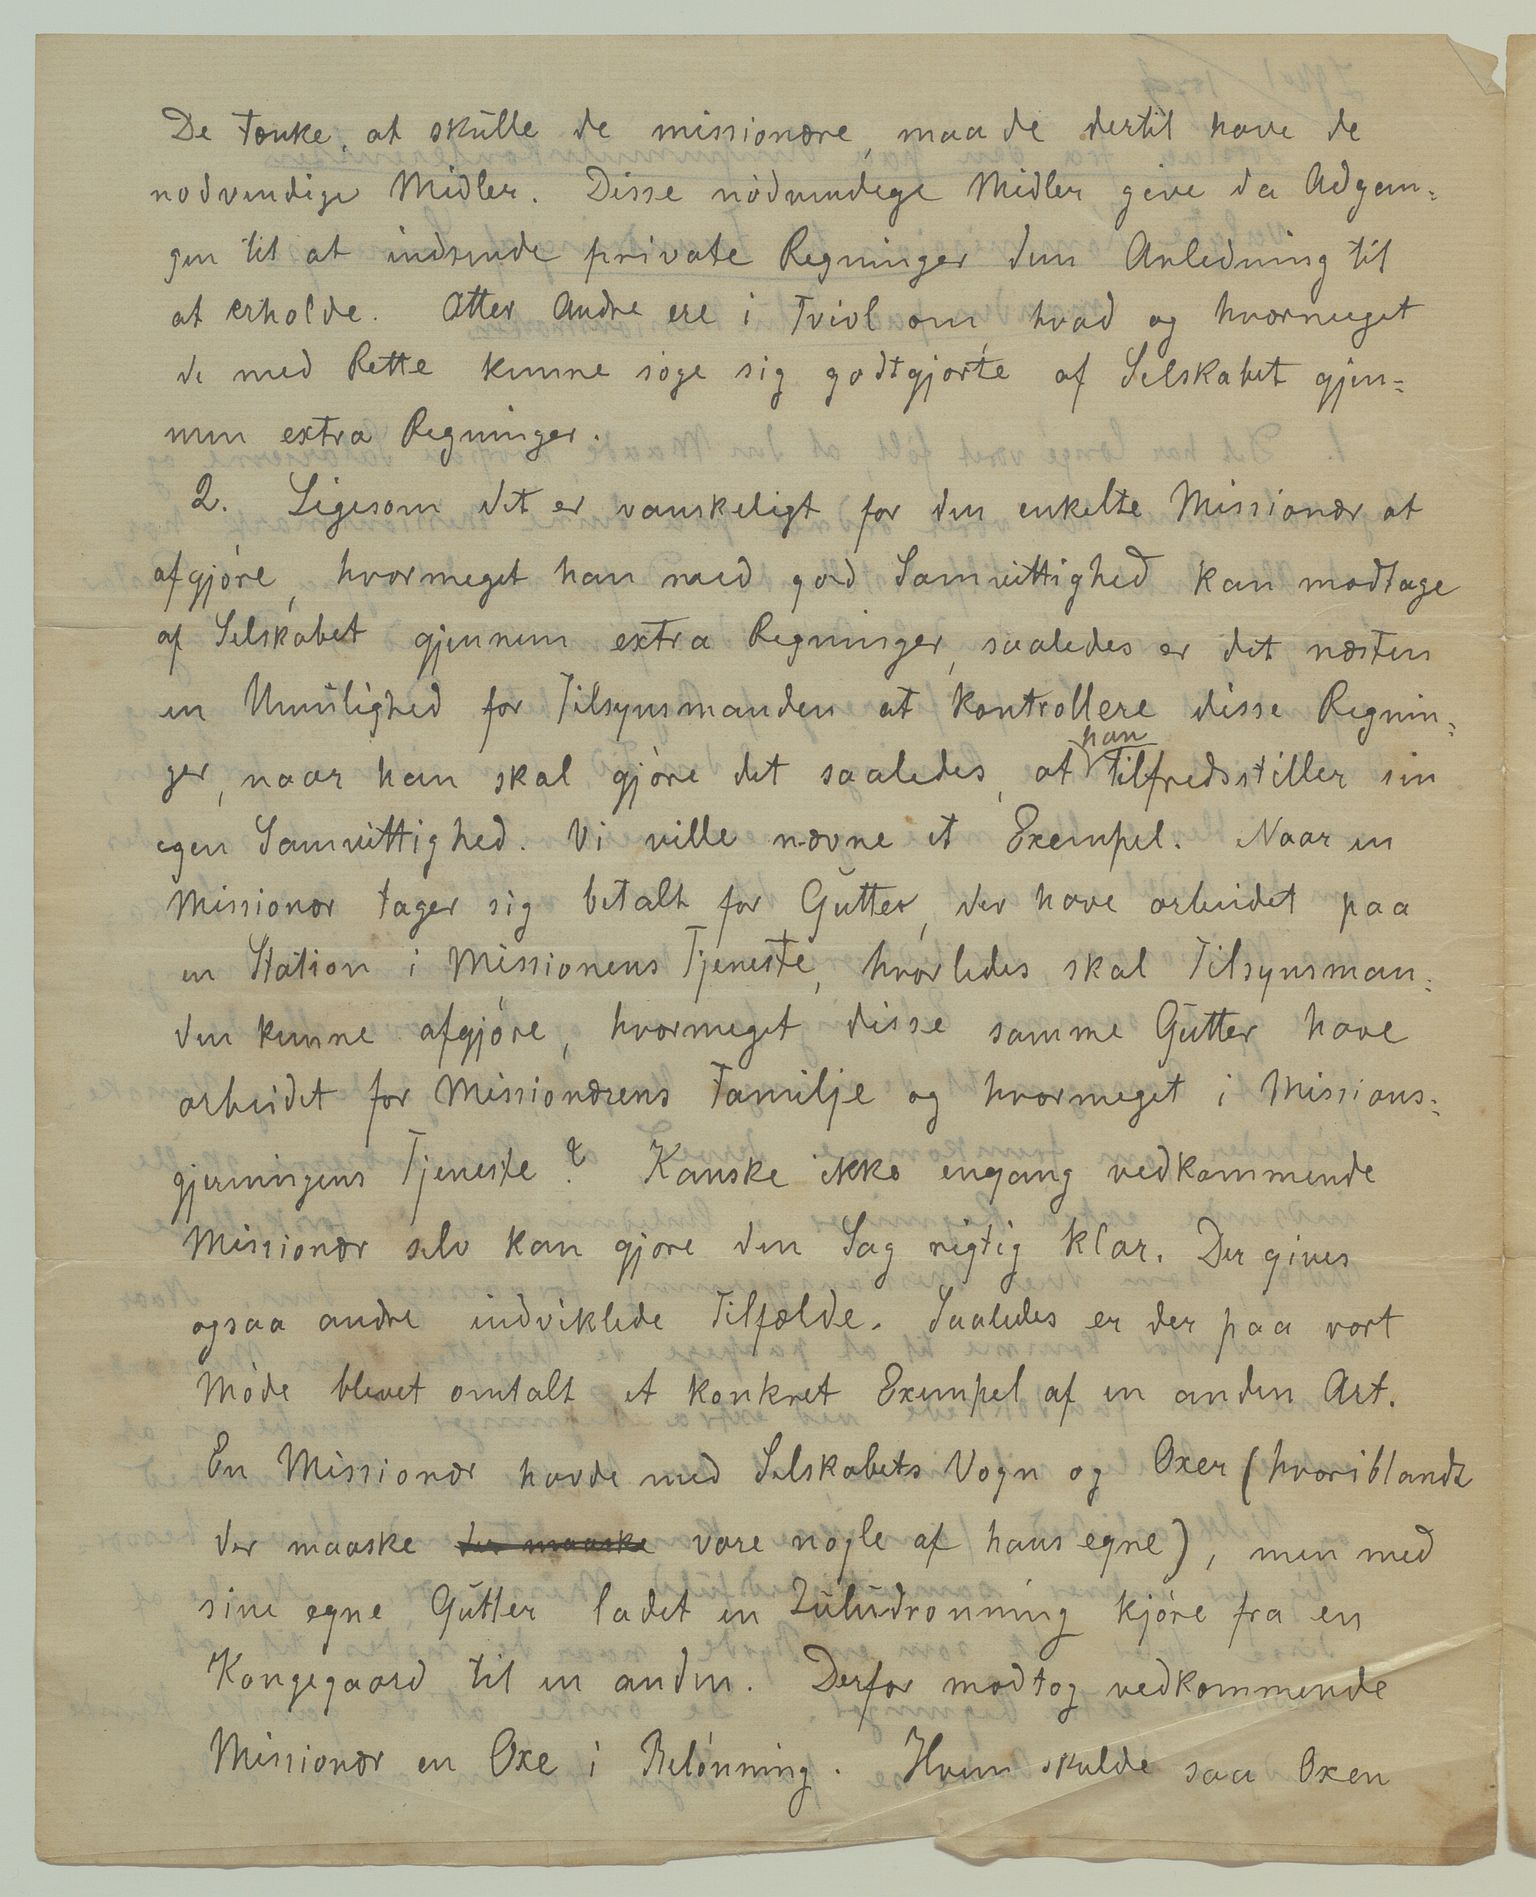 De tænke, at skulle de missionære, maa de dertil have de
nødvendige Midler. Disse nødvendige Midler give da Adgan=
gen til at indsende private Regninger den Anledning til
at erholde. Atter Andre ere i Tvivl om, hvad og hvormeget
de med Rette kunne søge sig godtgjorte af Selskabet gjen=
nem extra Regninger.
2. Ligesom det er vanskeligt for den enkelte Missionær at
afgjøre, hvormeget han med god Samvittighed kan modtage
af Selskabet gjennem extra Regninger, saaledes er det næsten
en Umulighed for Tilsynsmanden at kontrollere disse Regnin=
ger, naar han skal gjøre det saaledes, at han tilfredsstiller sin
egen Samvittighed. Vi ville nævne et Exempel. Naar en
Missionær tager sig betalt for Gutter, der have arbeidet paa
en Station i Missionens Tjeneste, hvorledes skal Tilsynsman=
den kunne afgjøre, hvormeget disse samme Gutter have
arbeidet for Missionærens Familje og hvormeget i Missions=
gjerningens Tjeneste? Kanske ikke engang vedkommende
Missionær selv kan gjøre den Sag rigtig klar. Der gives
ogsaa andre indviklede Tilfælde. Saaledes er der paa vort
Møde blevet omtalt et konkret Exempel af en anden Art.
En Missionær havde med Selskabets Vogn og Oxer (hvoriblandt
der maaske der maaske vare nogle af hans egne), men med
sine egne Gutter ladet en Zuludronning kjøre fra en
Kongegaard til en anden. Derfor modtog vedkommende
Missionær en Oxe i Belønning. Hvem skulde saa Oxen